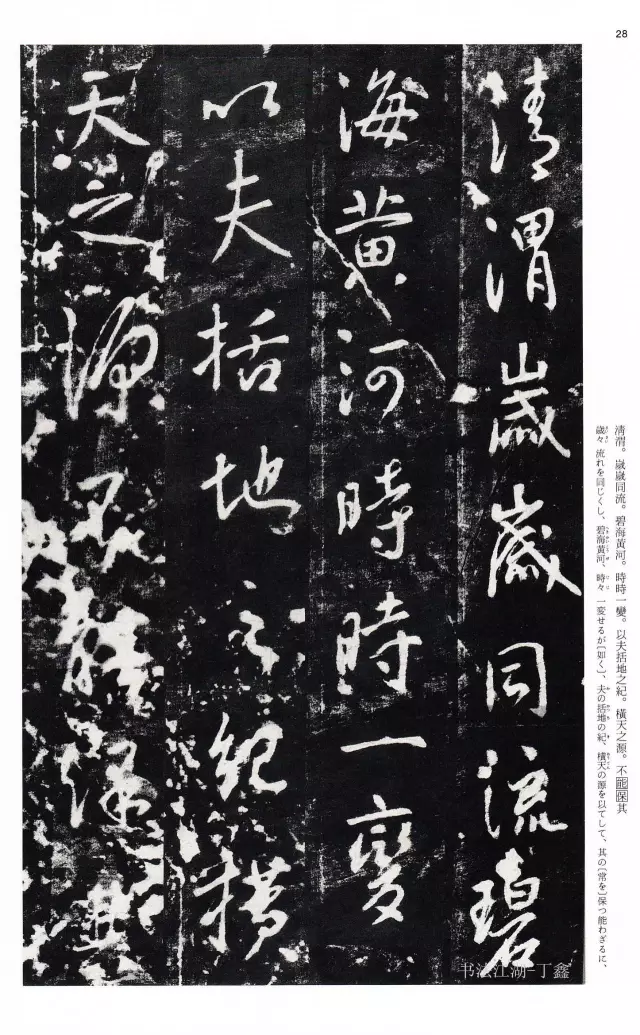 28
清渭歲歲同流碧
海黃河時時一變
以夫括地之紀橫
天之源不能保其
清渭。歲歲同流。碧海黃河。時時一變。以夫括地之紀。橫天之源。不能保其
歳々流れを同じくし、碧海黄河、時々一変せるが〔如く〕、夫の括地の紀、橫天の源を以てして、其の〔常を〕保つ能わざるに、
书法江湖-丁鑫